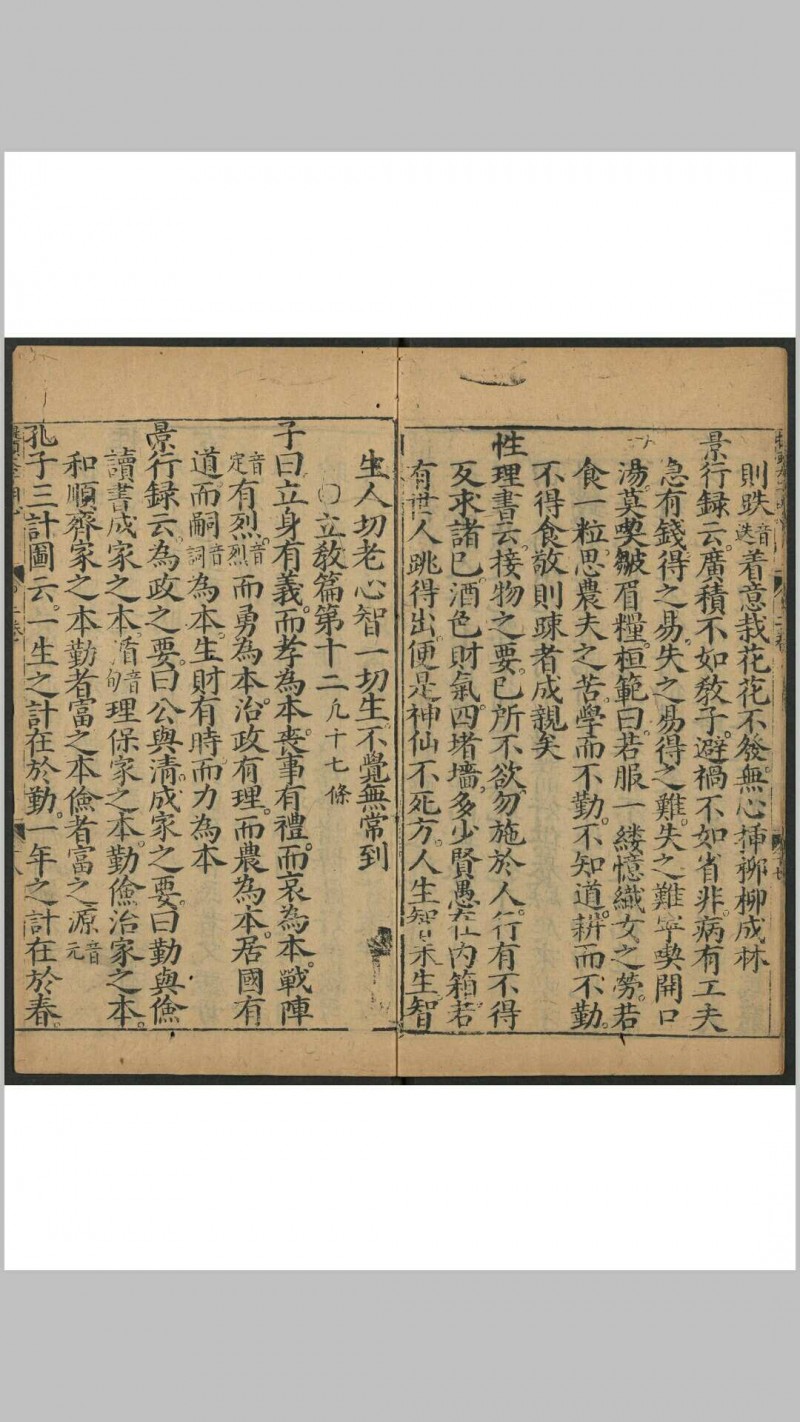 則跌音迭着意栽花花不發無心揷栁柳成林
景行録云廣積不如敎子避禍不如省非病有工夫
急有錢得之易失之易得之難失之難寧喫開口
湯莫喫皺眉糧桓範曰若服一縷憶織女之勞若
食一粒思農夫之苦學而不勤不知道耕而不勤
不得食敬則踈者成親矣
性理書云接物之要已所不欲勿施於人行有不得
反求諸已酒色財氣四堵墻多少賢愚在内箱若
有世人跳得出便是神仙不死方人生智未生智
生人切老心智一切生不覺無常到
〇立敎篇第十二凡十七條
子曰立身有義而孝為本喪事有禮而哀為本戰陣
音定有烈音烈而勇為本治政有理而農為本居國有
道而嗣音詞為本生財有時而力為本
景行録云為政之要曰公與清成家之要曰勤與儉
讀書成家之本循音旬理保家之本勤儉治家之本
和順齊家之本勤者富之本儉者富之源音元
孔子三計圖云一生之計在於勤一年之計在於春